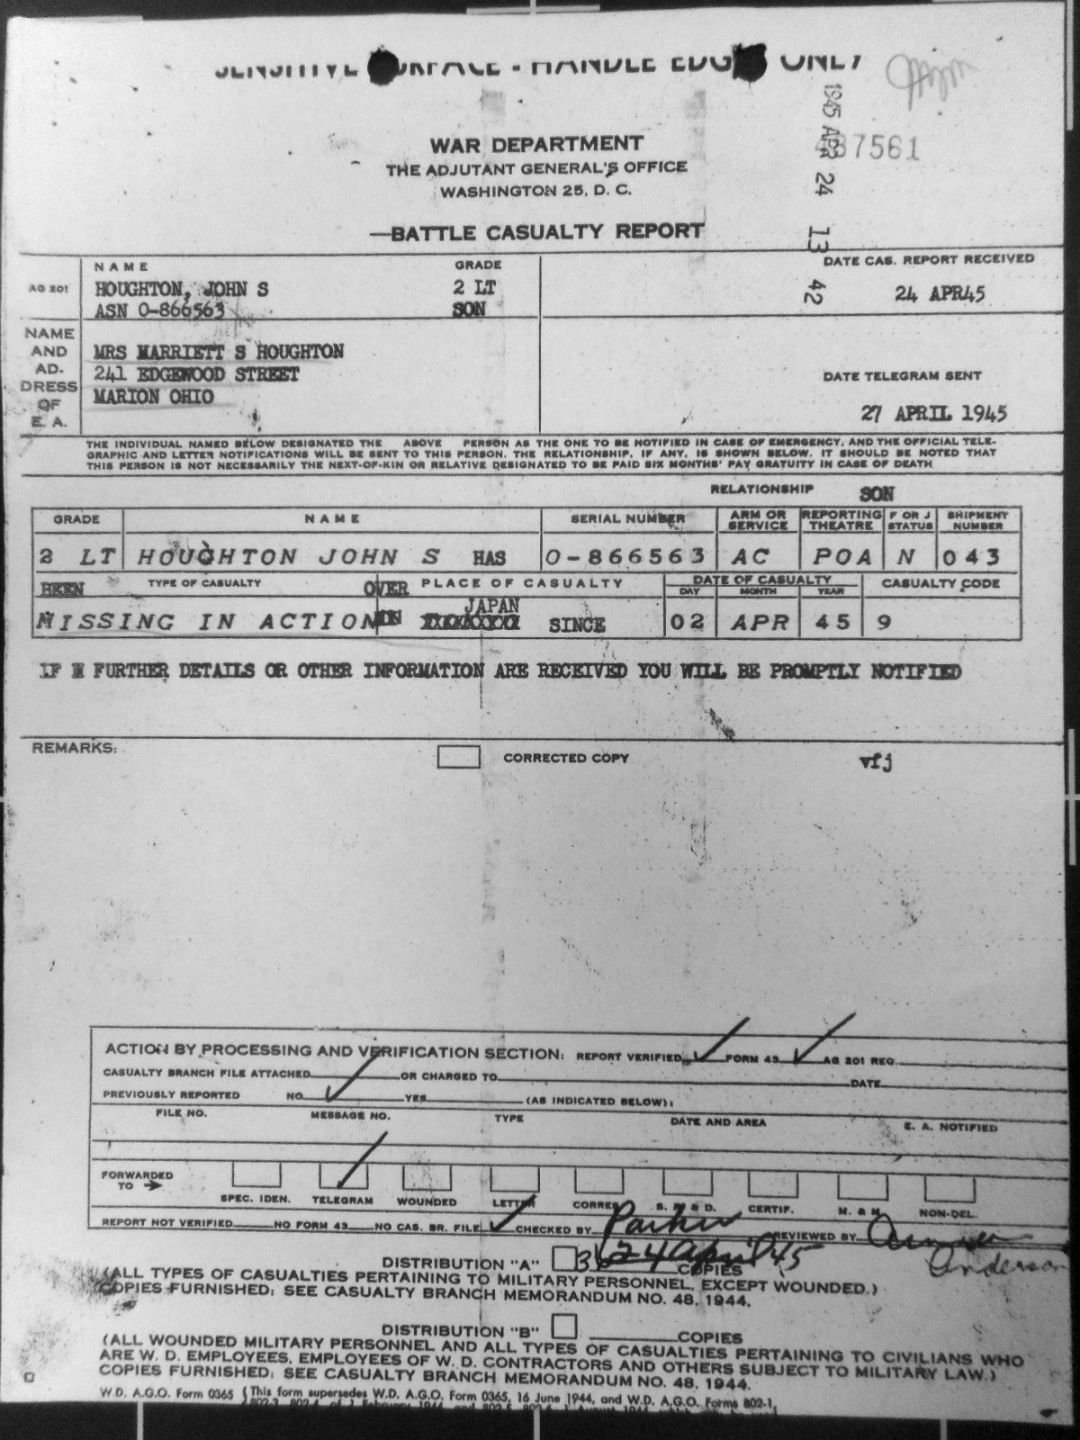 SENSITIVE SURFACE - HANDLE EDGES ONLY
1945 APR 24 13 42
437561
WAR DEPARTMENT
THE ADJUTANT GENERAL'S OFFICE
WASHINGTON 25, D. C.
—BATTLE CASUALTY REPORT
NAME GRADE DATE CAS. REPORT RECEIVED
AG 201 HOUGHTON, JOHN S 2 LT 24 APR45
ASN O-866563 SON
NAME AND AD- DRESS OF E. A.
MRS MARRIETT S HOUGHTON
241 EDGEWOOD STREET
MARION OHIO
DATE TELEGRAM SENT
27 APRIL 1945
THE INDIVIDUAL NAMED BELOW DESIGNATED THE ABOVE PERSON AS THE ONE TO BE NOTIFIED IN CASE OF EMERGENCY, AND THE OFFICIAL TELE-
GRAPHIC AND LETTER NOTIFICATIONS WILL BE SENT TO THIS PERSON. THE RELATIONSHIP, IF ANY, IS SHOWN BELOW. IT SHOULD BE NOTED THAT
THIS PERSON IS NOT NECESSARILY THE NEXT-OF-KIN OR RELATIVE DESIGNATED TO BE PAID SIX MONTHS' PAY GRATUITY IN CASE OF DEATH
RELATIONSHIP SON
GRADE NAME SERIAL NUMBER ARM OR SERVICE REPORTING THEATRE F OR J STATUS SHIPMENT NUMBER
2 LT HOUGHTON JOHN S HAS O-866563 AC POA N 043
BEEN TYPE OF CASUALTY OVER PLACE OF CASUALTY DATE OF CASUALTY CASUALTY CODE
DAY MONTH YEAR
JAPAN
MISSING IN ACTION SINCE 02 APR 45 9
IF FURTHER DETAILS OR OTHER INFORMATION ARE RECEIVED YOU WILL BE PROMPTLY NOTIFIED
REMARKS: CORRECTED COPY vfj
ACTION BY PROCESSING AND VERIFICATION SECTION: REPORT VERIFIED FORM 43 AG 201 REQ.
CASUALTY BRANCH FILE ATTACHED OR CHARGED TO DATE
PREVIOUSLY REPORTED NO YES (AS INDICATED BELOW):
FILE NO. MESSAGE NO. TYPE DATE AND AREA E. A. NOTIFIED
FORWARDED TO
SPEC. IDEN. TELEGRAM WOUNDED LETTER CORRES. S. R. & D. CERTIF. M. & M NON-DEL.
REPORT NOT VERIFIED NO FORM 43 NO CAS. BR. FILE CHECKED BY Parker REVIEWED BY Anderson
DISTRIBUTION "A" 24 April 45 COPIES
(ALL TYPES OF CASUALTIES PERTAINING TO MILITARY PERSONNEL, EXCEPT WOUNDED.)
COPIES FURNISHED: SEE CASUALTY BRANCH MEMORANDUM NO. 48, 1944.
DISTRIBUTION "B" COPIES
(ALL WOUNDED MILITARY PERSONNEL AND ALL TYPES OF CASUALTIES PERTAINING TO CIVILIANS WHO
ARE W. D. EMPLOYEES, EMPLOYEES OF W. D. CONTRACTORS AND OTHERS SUBJECT TO MILITARY LAW.)
COPIES FURNISHED: SEE CASUALTY BRANCH MEMORANDUM NO. 48, 1944.
W.D. A.G.O. Form 0365 (This form supersedes W.D. A.G.O. Form 0365, 16 June 1944, and W.D. A.G.O. Forms 802-1,